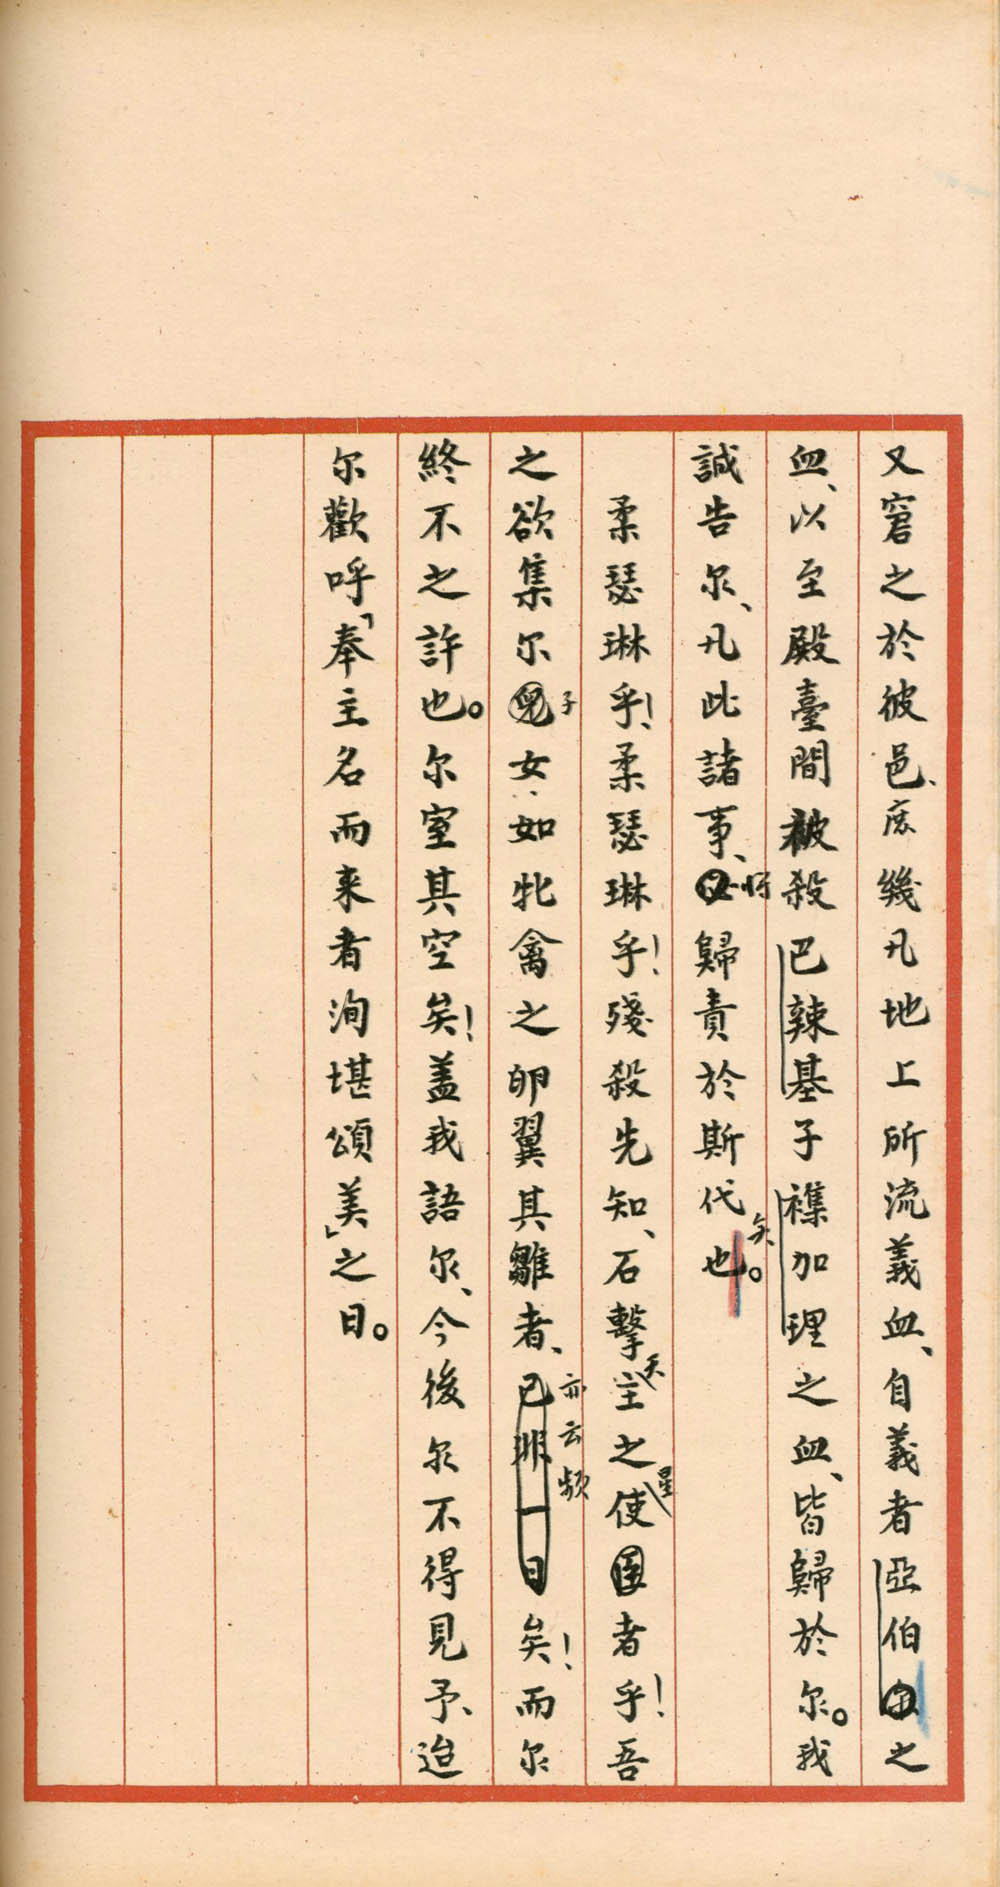 又窘之於彼邑、庶幾凡地上所流義血、自義者亞伯之
血、以至殿臺間被殺巴辣基子襍加理之血、皆歸於尔。我
誠告尔、凡此諸事、必將歸責於斯代也矣。
柔瑟琳乎!柔瑟琳乎!殘殺先知、石擊主天之使星者乎!吾
之欲集尔兒子女、如牝禽之卵翼其雛者、已非一日亦云頻矣!而尔
終不之許也。尔室其空矣!蓋我語尔、今後尔不得見予、迨
尔歡呼「奉主名而来者洵堪頌美」之日。